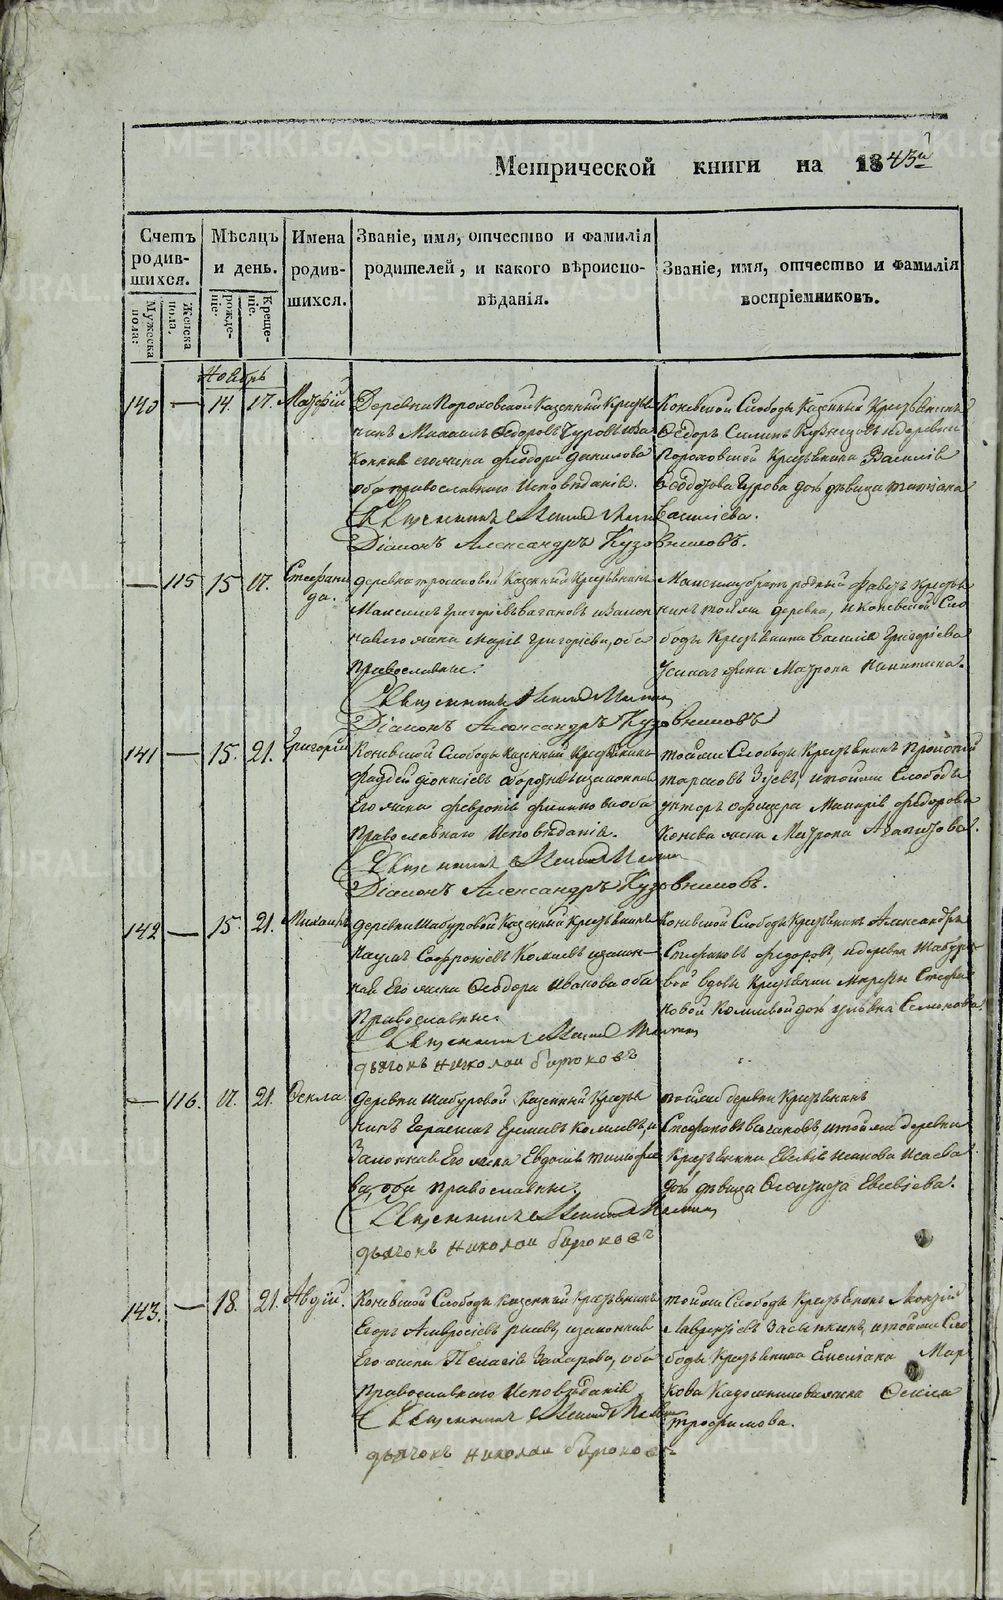 Метрической книги на 1843й
Счетъ родившихся.
Мужеска пола:
Женска пола,
Мѣсяцъ и день.
рожденіе:
крещеніе.
Имена родившихся.
Званіе, имя, отчество и фамилія
родителей, и какого вѣроиспо-
вѣданія.
Званіе, имя, отчество и фамилія
воспріемниковъ.
Ноябрь
140 — 14. 17. Матфій
Деревни Пороховской Казенный Кресть
нинъ Михаилъ Ѳедоровъ Гуровъ иза
конная его жена Феодора Данилова
оба православнаго Исповѣданія.
Священникъ
Діаконъ Александръ Кузовниковъ.
Коневской Слободы Казенный Крестьянинъ
Ѳедоръ Силинъ Кузнецовъ и деревни
Пороховской Крестьянина Василія
Ѳеодотова Гурова дочь дѣвица Татіана
Василіева.
— 115 15 17. Стефани
да.
деревни Казенный Крестьянинъ
Максимъ Григоріевъ Ваганов изакон
ная его жена Марія Григоріева, оба
Православные.
Священникъ
Діаконъ Александръ Кузовниковъ
Максиму братъ родный Фавстъ Крестья
нинъ той же деревни, и Коневской Сло
боды Крестьянина Василія Григоріева
жена Матрона Никитина.
141 — 15. 21. Григорій
Коневской Слободы Казенный Крестьянинъ
Фаддей Діонисіевъ изаконная
Его жена Февронія Филипова оба
Православнаго Исповѣданія.
Священникъ
Діаконъ Александръ Кузовниковъ.
той же Слободы Крестьянинъ
Зуевъ, и той же Слободы
унтеръ офицера Федорова
Конева жена Матрона Агапитова.
142 — 15. 21. Михаилъ
деревни Шабуровой Казенный Крестьянинъ
Наумъ Софроніевъ Комлевъ изакон-
ная Его жена Ѳеодора Иванова оба
Православные.
Священникъ
дьячокъ Николаи бирюковъ
Коневской Слободы Крестьянинъ Александръ
Стефановъ Федоровъ, и деревни Шабуро
вой вдовы Крестьянки Марфы Стефа
новой Комлевой дочь Семенова.
— 116. 17. 21. Ѳекла
деревни Шабуровой Казенный Кресть
нинъ Герасимъ Комлевъ, и
Законная Его жена Евдокія Тимофѣе
ва, оба православные.
Священникъ
дьячокъ Николаи бирюковъ
той же деревни Крестьянинъ
Стефановъ Вагановъ и той же деревни
Крестьянина Евсевія Исакова Исаева
дочь дѣвица Евсевіева.
143. — 18. 21. Авдій.
Коневской Слободы Казенный Крестьянинъ
Егоръ Амвросіевъ изаконная
Его жена Пелагія Захарова, оба
Православнаго Исповѣданія
Священникъ
дьячокъ Николаи бирюковъ
той же Слободы Крестьянинъ
Лаврентіевъ Засыпкинъ, и той же Сло
боды Крестьянина Емеліана Мар
кова жена Ѳекла
трофимова.
METRIKI.GASO-URAL.RU